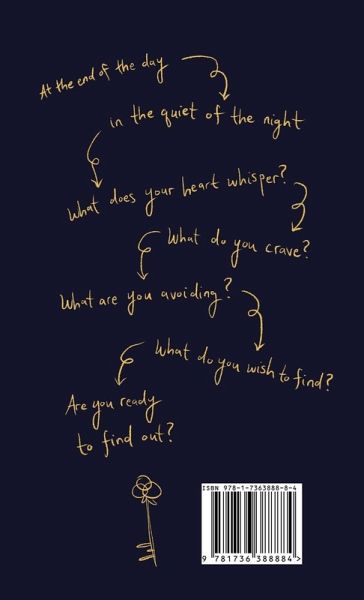 At the end of the day
in the quiet of the night
What does your heart whisper?
What do you crave?
What are you avoiding?
What do you wish to find?
Are you ready
to find out?
ISBN 978-1-7363888-8-4
9 781736 388884 >